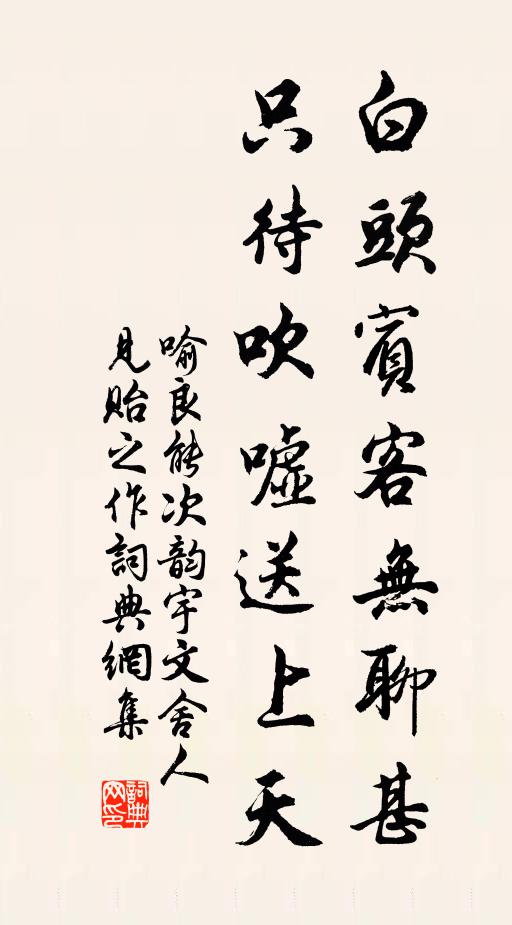 白頭賓客無聊甚
只待吹噓送上天
喻良能次韵宇文舍人
見貽之作詞典網集
詞典网印